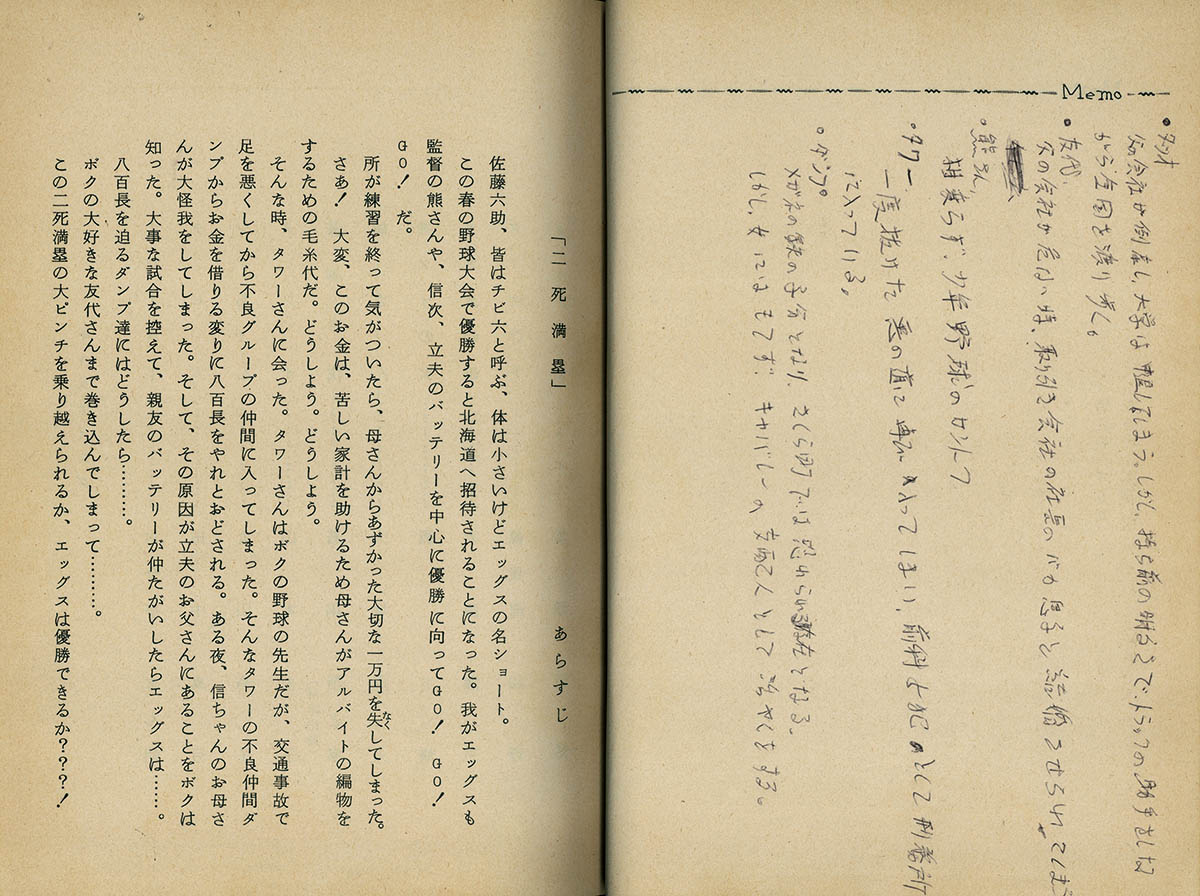 Memo
・タツオ
父の会社が倒産し、大学は中退してしまう。しかし、持ち前の明るさで、トラックの助手をしな
がら全国を渡り歩く。
・友代
父の会社が危ない時、取り引き会社の社長のバカ息子と結婚させられてしまう
・熊さん
相変らず、少年野球のカントク
・タワー
一度抜けた悪の道に再び入ってしまい、前科よ犯として刑務所
に入っている。
・ダンプ
メガネの鉄の子分となり、さくら町では恐れられる存在となる。
しかし、女にはもてず、キャバレーの支配人として
「二死満塁」 あらすじ
佐藤六助、皆はチビ六と呼ぶ、体は小さいけどエッグスの名ショート。
この春の野球大会で優勝すると北海道へ招待されることになった。我がエッグスも
監督の熊さんや、信次、立夫のバッテリーを中心に優勝に向ってGO! GO!
GO! だ。
所が練習を終って気がついたら、母さんからあずかった大切な一万円を失なくしてしまった。
さあ! 大変、このお金は、苦しい家計を助けるため母さんがアルバイトの編物を
するための毛糸代だ。どうしよう。どうしよう。
そんな時、タワーさんに会った。タワーさんはボクの野球の先生だが、交通事故で
足を悪くしてから不良グループの仲間に入ってしまった。そんなタワーの不良仲間ダ
ンプからお金を借りる変りに八百長をやれとおどされる。ある夜、信ちゃんのお母さ
んが大怪我をしてしまった。そして、その原因が立夫のお父さんにあることをボクは
知った。大事な試合を控えて、親友のバッテリーが仲たがいしたらエッグスは……。
八百長を迫るダンプ達にはどうしたら………。
ボクの大好きな友代さんまで巻き込んでしまって………。
この二死満塁の大ピンチを乗り越えられるか、エッグスは優勝できるか???!